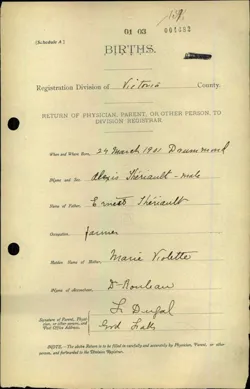 01 03
004483
(Schedule A)
BIRTHS.
Registration Division of Victoria County.
RETURN OF PHYSICIAN, PARENT, OR OTHER PERSON, TO
DIVISION REGISTRAR.
When and Where Born, 24 March 1901 Drummond
Name and Sex Alexis Thériault - male
Name of Father, Ernest Thériault
Occupation, farmer
Maiden Name of Mother, Marie Violette
Name of Accoucheur,
L. Dugal
Signature of Parent, Physician, or other person, and
Post Office Address.
Grd Falls
NOTE.—The above Return to be filled in carefully and accurately by Physician, Parent, or other
person, and forwarded to the Division Registrar.